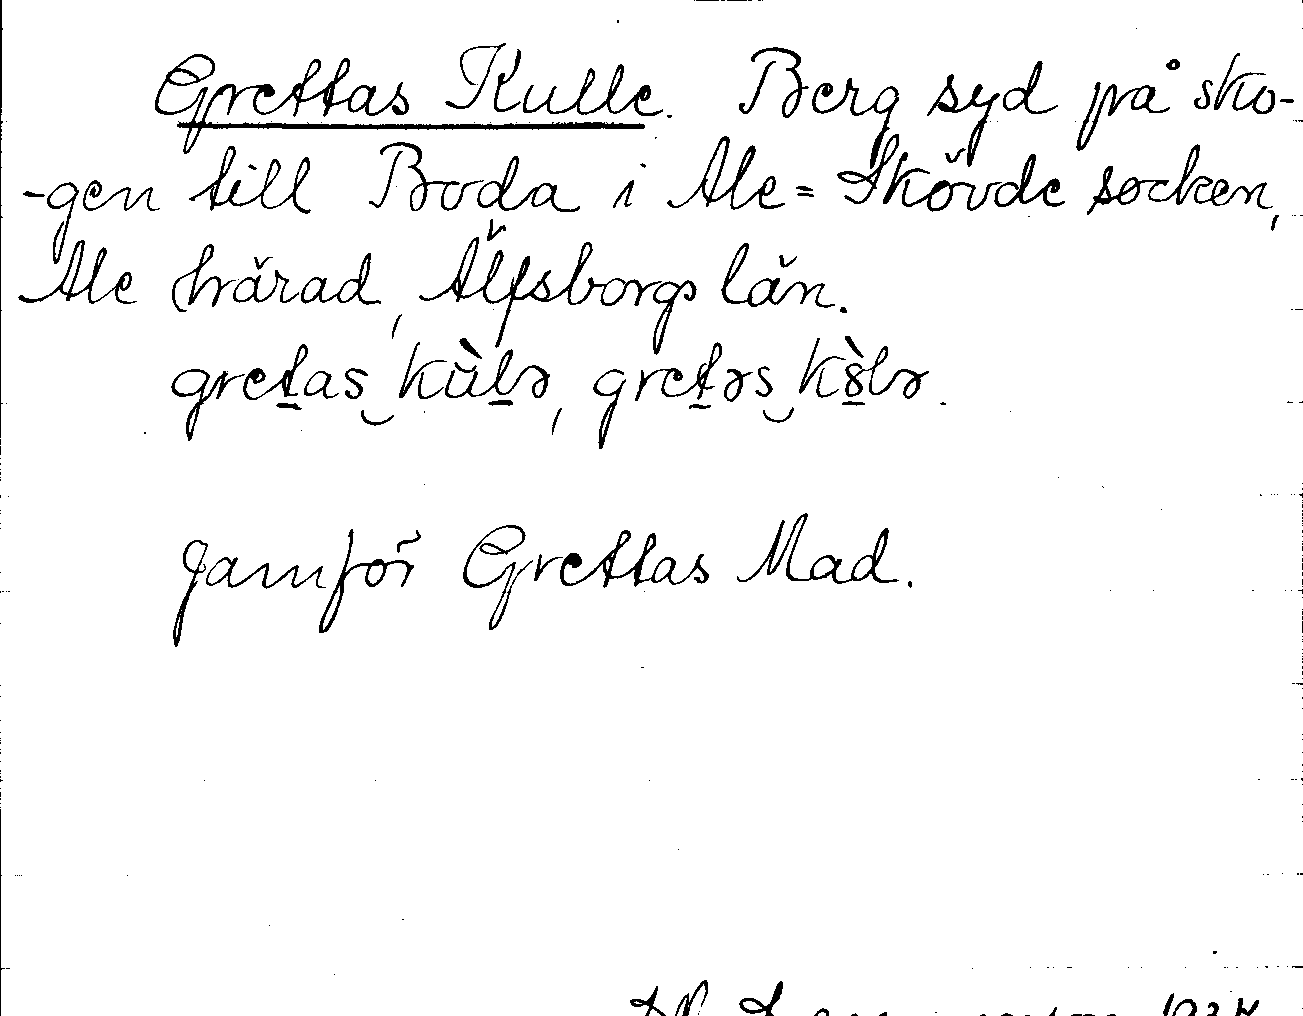 Grettas Kulle. Berg syd på sko-
-gen till Boda i Ale=Skövde socken,
Ale härad, Älfsborgs län.
gretas kùlə, gretəs kɞ̀lə.
Jämför Grettas Mad.